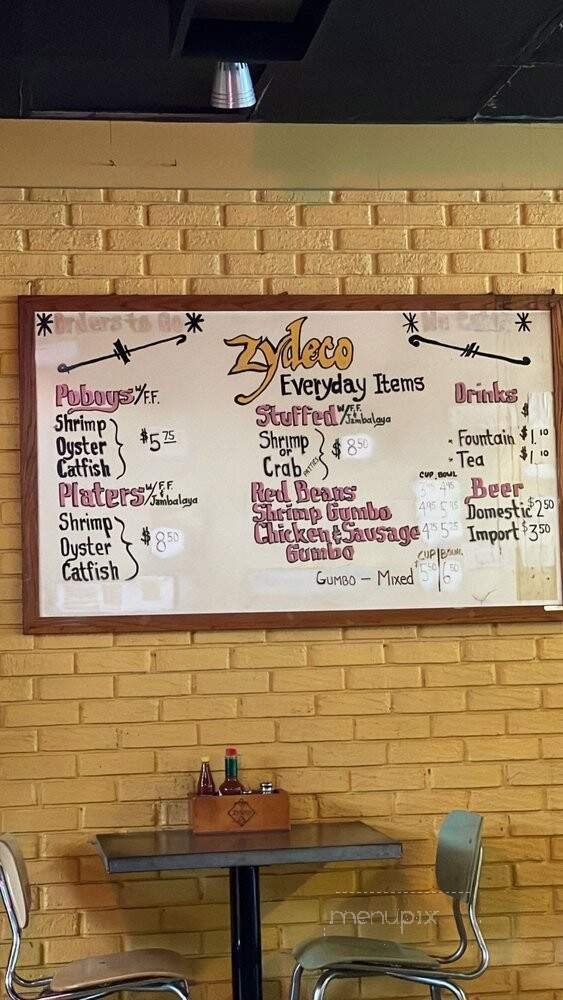 Orders to Go
Zydeco
Everyday Items
Poboys w/F.F.
Shrimp
Oyster
Catfish
$5.75
Platers w/F.F. & Jambalaya
Shrimp
Oyster
Catfish
$8.50
Stuffed w/F.F. & Jambalaya
Shrimp
or
Crab PATTIES
$8.50
CUP BOWL
Red Beans 4.95
Shrimp Gumbo 4.95 5.95
Chicken & Sausage 4.25 5.25
Gumbo
CUP BOWL
GUMBO - MIXED $5.50 6.50
Drinks
$
Fountain $1.10
Tea $1.10
Beer
Domestic $2.50
Import $3.50
menupix